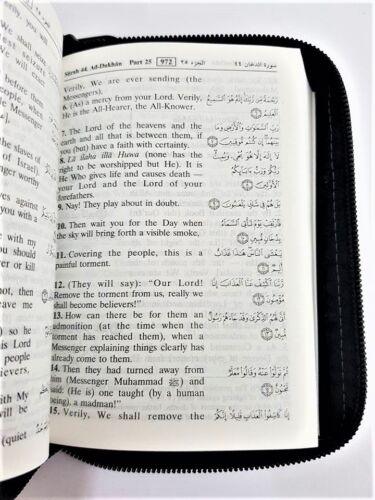 before
them
Messenger
the slaves of
of Israel).
ger worthy
ves against
you with a
with my
you should
er or kill
not, then
eave me
) so he
is Lord
people
elievers.
with My
will be
(quiet
Sûrah 44. Ad-Dukhân Part 25 972 الجزء ٢٥ سورة الدخان ٤٤
Verily, We are ever sending (the
Messengers),
6. (As) a mercy from your Lord. Verily,
He is the Hearer, the All-Knower.
7. The Lord of the heavens and the
earth and all that is between them, if
you (but) have a faith with certainty.
8. Lâ ilâha illâ Huwa (none has the
right to be worshipped but He). It is
He Who gives life and causes death —
your Lord and the Lord of your
forefathers.
9. Nay! They play about in doubt.
10. Then wait you for the Day when
the sky will bring forth a visible smoke,
11. Covering the people, this is a
painful torment.
12. (They will say): "Our Lord!
Remove the torment from us, really we
shall become believers!"
13. How can there be for them an
admonition (at the time when the
torment has reached them), when a
Messenger explaining things clearly has
already come to them.
14. Then they had turned away from
him (Messenger Muhammad ﷺ) and
said: (He is) one taught (by a human
being), a madman!"
15. Verily, We shall remove the
رَحْمَةً مِّن رَّبِّكَ إِنَّهُ هُوَ السَّمِيعُ
الْعَلِيمُ
رَبِّ السَّمَٰوَٰتِ وَالْأَرْضِ وَمَا
لَا إِلَٰهَ إِلَّا هُوَ يُحْيِي وَيُمِيتُ
رَبُّكُمْ وَرَبُّ ءَابَائِكُمُ
الْأَوَّلِينَ
فَارْتَقِبْ يَوْمَ تَأْتِي السَّمَاءُ
بِدُخَانٍ مُّبِينٍ
يَغْشَى النَّاسَ هَٰذَا عَذَابٌ
أَلِيمٌ
مُؤْمِنُونَ
ثُمَّ تَوَلَّوْا عَنْهُ وَقَالُوا مُعَلَّمٌ
مَّجْنُونٌ
إِنَّا كَاشِفُوا الْعَذَابِ قَلِيلًا إِنَّكُمْ